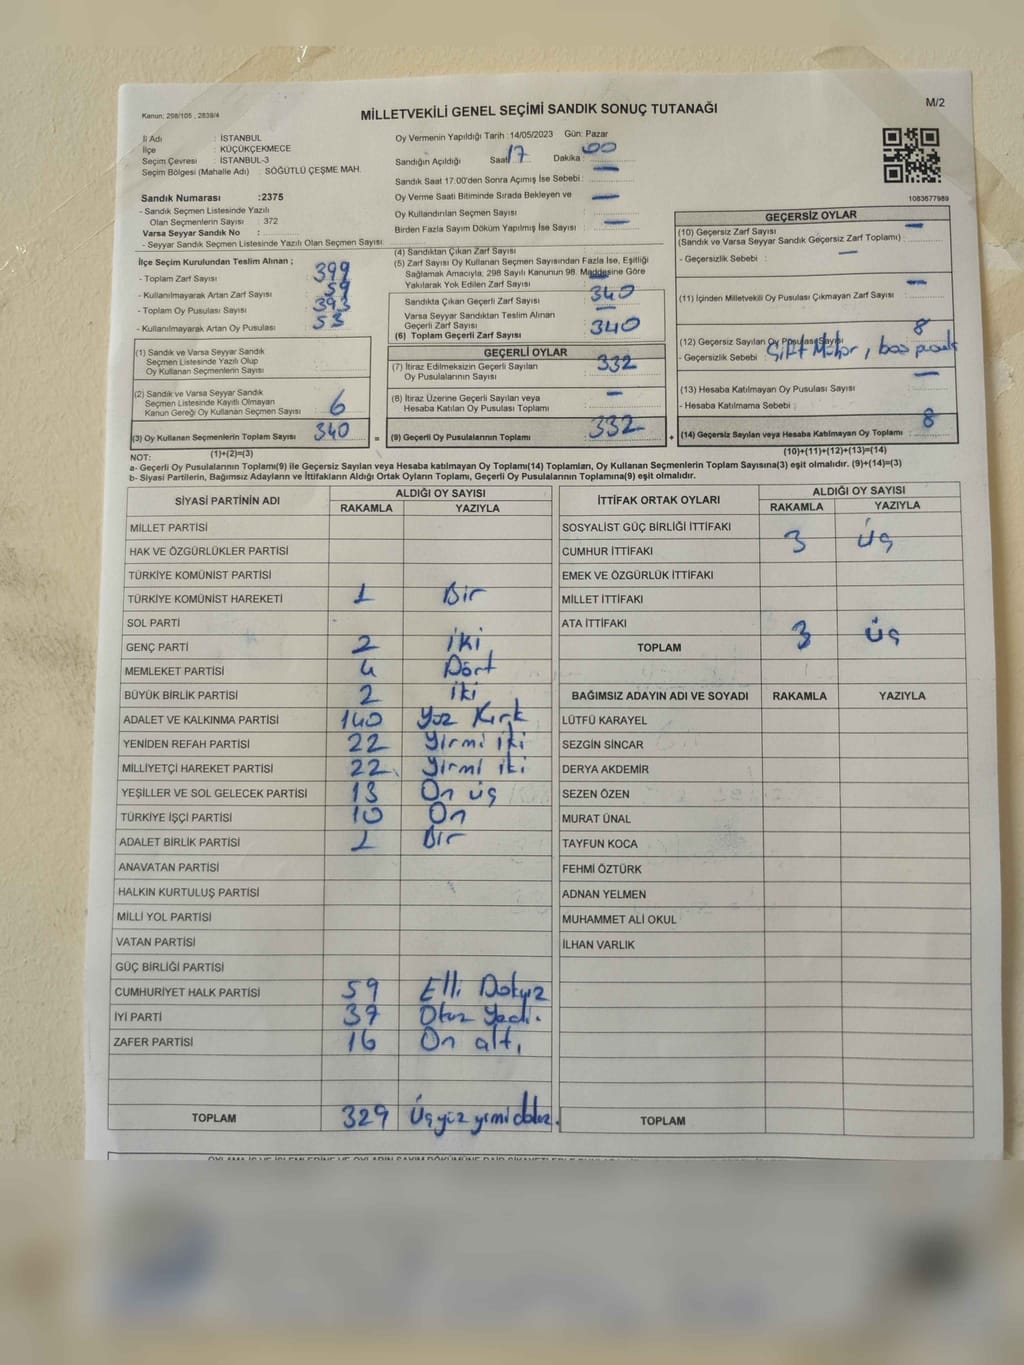 M/2
Kanun: 298/105 , 2839/4
MİLLETVEKİLİ GENEL SEÇİMİ SANDIK SONUÇ TUTANAĞI
İl Adı : İSTANBUL
İlçe : KÜÇÜKÇEKMECE
Seçim Çevresi : İSTANBUL-3
Seçim Bölgesi (Mahalle Adı) : SÖĞÜTLÜ ÇEŞME MAH.
Sandık Numarası :2375
- Sandık Seçmen Listesinde Yazılı
Olan Seçmenlerin Sayısı : 372
Varsa Seyyar Sandık No :
- Seyyar Sandık Seçmen Listesinde Yazılı Olan Seçmen Sayısı:
İlçe Seçim Kurulundan Teslim Alınan ;
- Toplam Zarf Sayısı 399
- Kullanılmayarak Artan Zarf Sayısı 59
- Toplam Oy Pusulası 393
- Kullanılmayarak Artan Oy Pusulası 53
(1) Sandık ve Varsa Seyyar Sandık
Seçmen Listesinde Yazılı Olup
Oy Kullanan Seçmenlerin Sayısı
(2) Sandık ve Varsa Seyyar Sandık
Seçmen Listesinde Kayıtlı Olmayan
Kanun Gereği Oy Kullanan Seçmen Sayısı 6
(3) Oy Kullanan Seçmenlerin Toplam Sayısı 340 =
(1)+(2)=(3)
Oy Vermenin Yapıldığı Tarih : 14/05/2023 Gün: Pazar
Sandığın Açıldığı Saat 17 Dakika : 00
Sandık Saat 17:00'den Sonra Açımış İse Sebebi :
Oy Verme Saati Bitiminde Sırada Bekleyen ve
Oy Kullandırılan Seçmen Sayısı
Birden Fazla Sayım Döküm Yapılmış İse Sayısı :
(4) Sandıktan Çıkan Zarf Sayısı
(5) Zarf Sayısı Oy Kullanan Seçmen Sayısından Fazla İse, Eşitliği
Sağlamak Amacıyla, 298 Sayılı Kanunun 98. Maddesine Göre
Yakılarak Yok Edilen Zarf Sayısı
Sandıkta Çıkan Geçerli Zarf Sayısı 340
Varsa Seyyar Sandıktan Teslim Alınan
Geçerli Zarf Sayısı
(6) Toplam Geçerli Zarf Sayısı 340
GEÇERLİ OYLAR
(7) İtiraz Edilmeksizin Geçerli Sayılan
Oy Pusulasının Sayısı 332
(8) İtiraz Üzerine Geçerli Sayılan veya
Hesaba Katılan Oy Pusulası Toplamı
(9) Geçerli Oy Pusulalarının Toplamı 332 +
1083677989
GEÇERSİZ OYLAR
(10) Geçersiz Zarf Sayısı
(Sandık ve Varsa Seyyar Sandık Geçersiz Zarf Toplamı) :
- Geçersizlik Sebebi :
(11) İçinden Milletvekili Oy Pusulası Çıkmayan Zarf Sayısı
(12) Geçersiz Sayılan Oy Pusulası Sayısı 8
- Geçersizlik Sebebi : Çift Mühür, boş
(13) Hesaba Katılmayan Oy Pusulası Sayısı
- Hesaba Katılmama Sebebi :
(14) Geçersiz Sayılan veya Hesaba Katılmayan Oy Pusulası Toplamı : 8
(10)+(11)+(12)+(13)=(14)
NOT:
a- Geçerli Oy Pusulalarının Toplamı(9) ile Geçersiz Sayılan veya Hesaba katılmayan Oy Toplamı(14) Toplamları, Oy Kullanan Seçmenlerin Toplam Sayısına(3) eşit olmalıdır. (9)+(14)=(3)
b- Siyasi Partilerin, Bağımsız Adayların ve İttifakların Aldığı Ortak Oyların Toplamı, Geçerli Oy Pusulalarının Toplamına(9) eşit olmalıdır.
SİYASİ PARTİNİN ADI ALDIĞI OY SAYISI
RAKAMLA YAZIYLA
MİLLET PARTİSİ
HAK VE ÖZGÜRLÜKLER PARTİSİ
TÜRKİYE KOMÜNİST PARTİSİ
TÜRKİYE KOMÜNİST HAREKETİ 1 Bir
SOL PARTİ
GENÇ PARTİ 2 İki
MEMLEKET PARTİSİ 4 Dört
BÜYÜK BİRLİK PARTİSİ 2 İki
ADALET VE KALKINMA PARTİSİ 140 Yüz Kırk
YENİDEN REFAH PARTİSİ 22 Yirmi iki
MİLLİYETÇİ HAREKET PARTİSİ 22 Yirmi iki
YEŞİLLER VE SOL GELECEK PARTİSİ 13 On üç
TÜRKİYE İŞÇİ PARTİSİ 10 On
ADALET BİRLİK PARTİSİ 1 Bir
ANAVATAN PARTİSİ
HALKIN KURTULUŞ PARTİSİ
MİLLİ YOL PARTİSİ
VATAN PARTİSİ
GÜÇ BİRLİĞİ PARTİSİ
CUMHURİYET HALK PARTİSİ 59 Elli Dokuz
İYİ PARTİ 37 Otuz Yedi.
ZAFER PARTİSİ 16 On altı
TOPLAM 329 Üçyüz yirmi dokuz.
İTTİFAK ORTAK OYLARI ALDIĞI OY SAYISI
RAKAMLA YAZIYLA
SOSYALİST GÜÇ BİRLİĞİ İTTİFAKI
CUMHUR İTTİFAKI 3 Üç
EMEK VE ÖZGÜRLÜK İTTİFAKI
MİLLET İTTİFAKI
ATA İTTİFAKI
TOPLAM 3 Üç
BAĞIMSIZ ADAYIN ADI VE SOYADI RAKAMLA YAZIYLA
LÜTFÜ KARAYEL
SEZGİN SİNCAR
DERYA AKDEMİR
SEZEN ÖZEN
MURAT ÜNAL
TAYFUN KOCA
FEHMİ ÖZTÜRK
ADNAN YELMEN
MUHAMMET ALİ OKUL
İLHAN VARLIK
TOPLAM